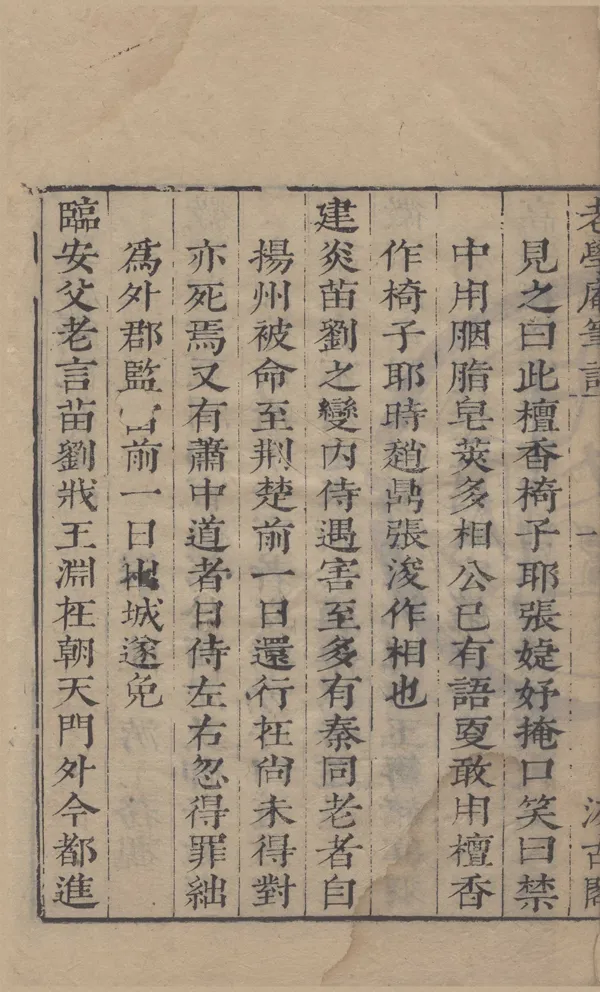 老學庵筆記 一 汲古閣
見之曰此檀香椅子耶張婕妤掩口笑曰禁
中用胭脂皂莢多相公已有語更敢用檀香
作椅子耶時趙鼎張浚作相也
建炎苗劉之變內侍遇害至多有秦同老者自
揚州被命至荆楚前一日還行在尚未得對
亦死焉又有蕭中道者日侍左右忽得罪絀
爲外郡監官前一日出城遂免
臨安父老言苗劉戕王淵在朝天門外今都進